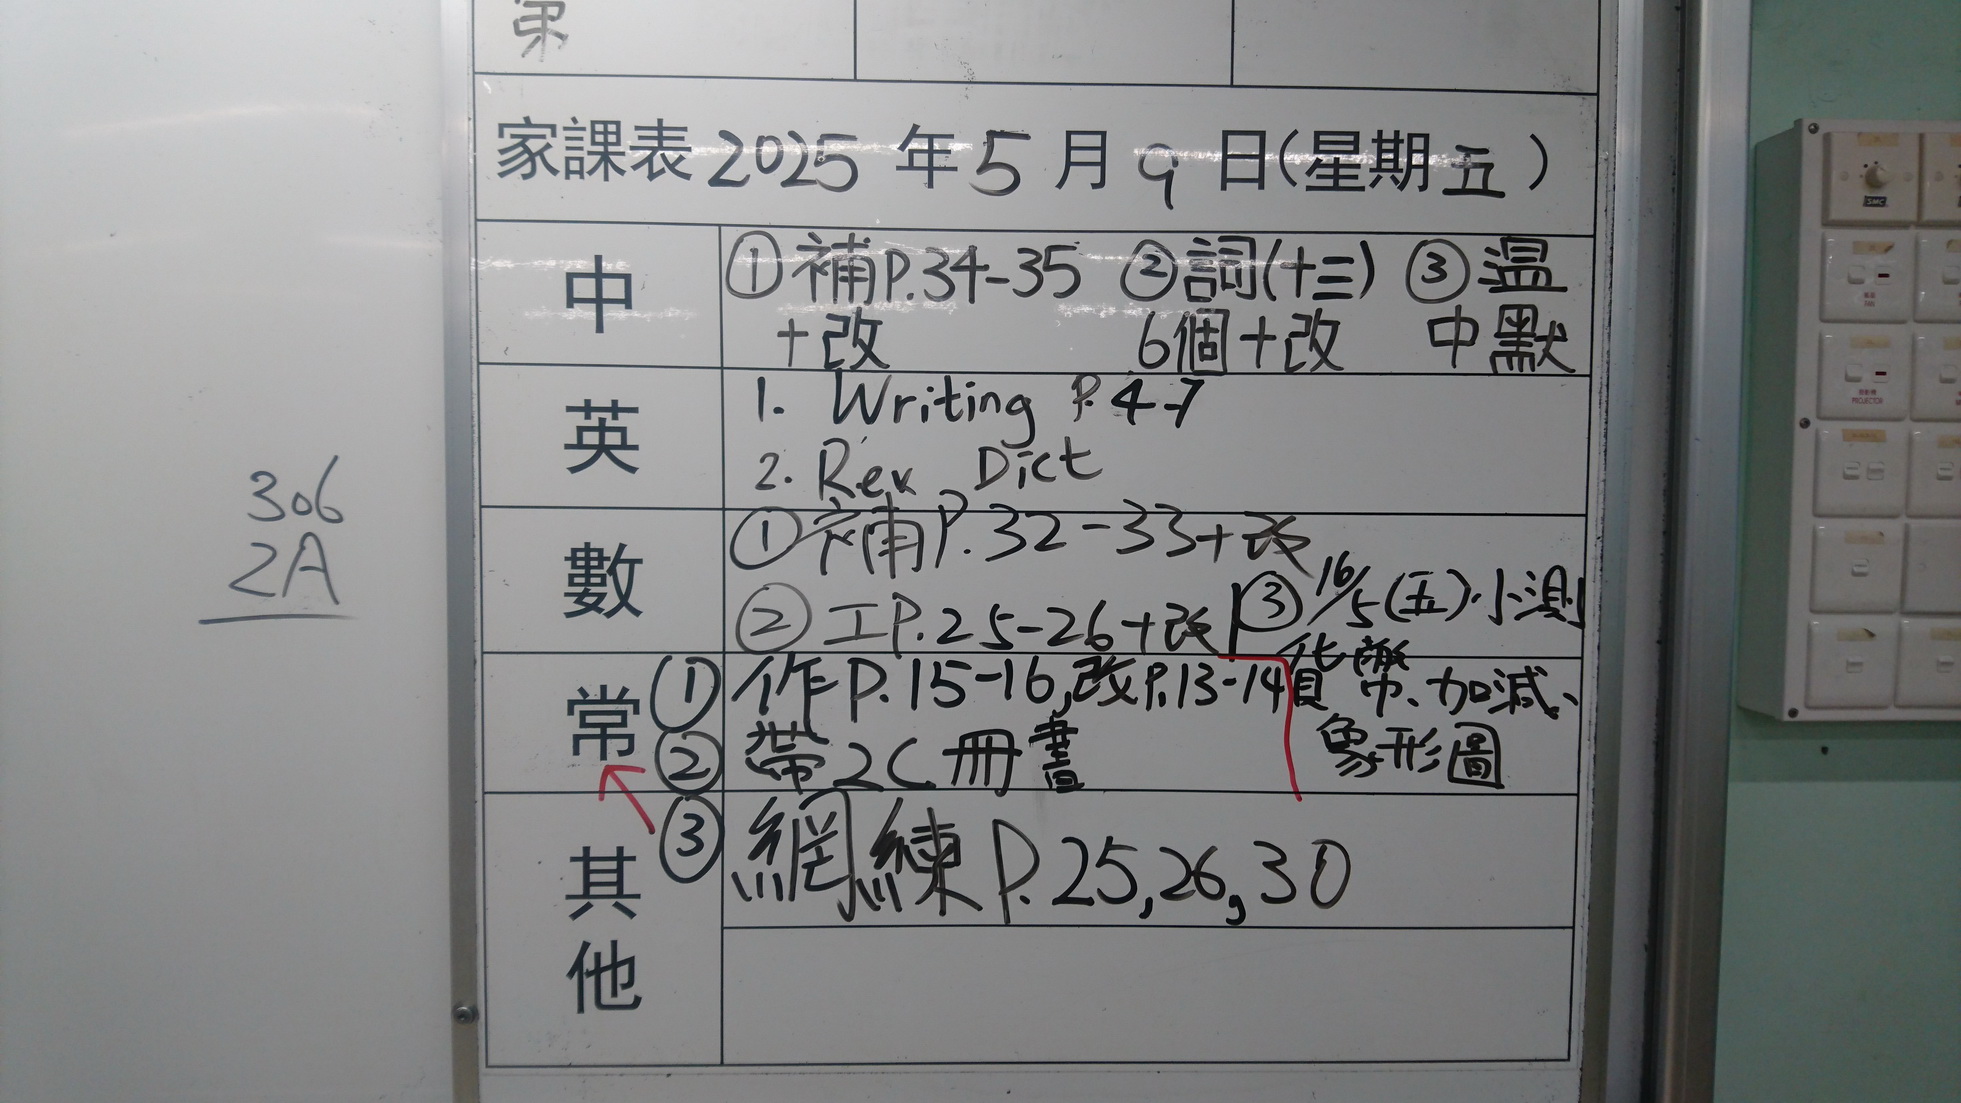 家課表 2025 年 5 月 9 日(星期五)
中
①補P.34-35 ②詞(十三) ③温
+改 6個+改 中默
英
1. Writing P.4-7
2. Rev Dict
數
①補P.32-33+改
②工P.25-26+改 ③16/5(五)小測
貨幣、加減、
象形圖
常
①作P.15-16,改P.13-14
②帶2C冊書
③網練P.25,26,30
其他
306
2A
SMC
PROJECTOR